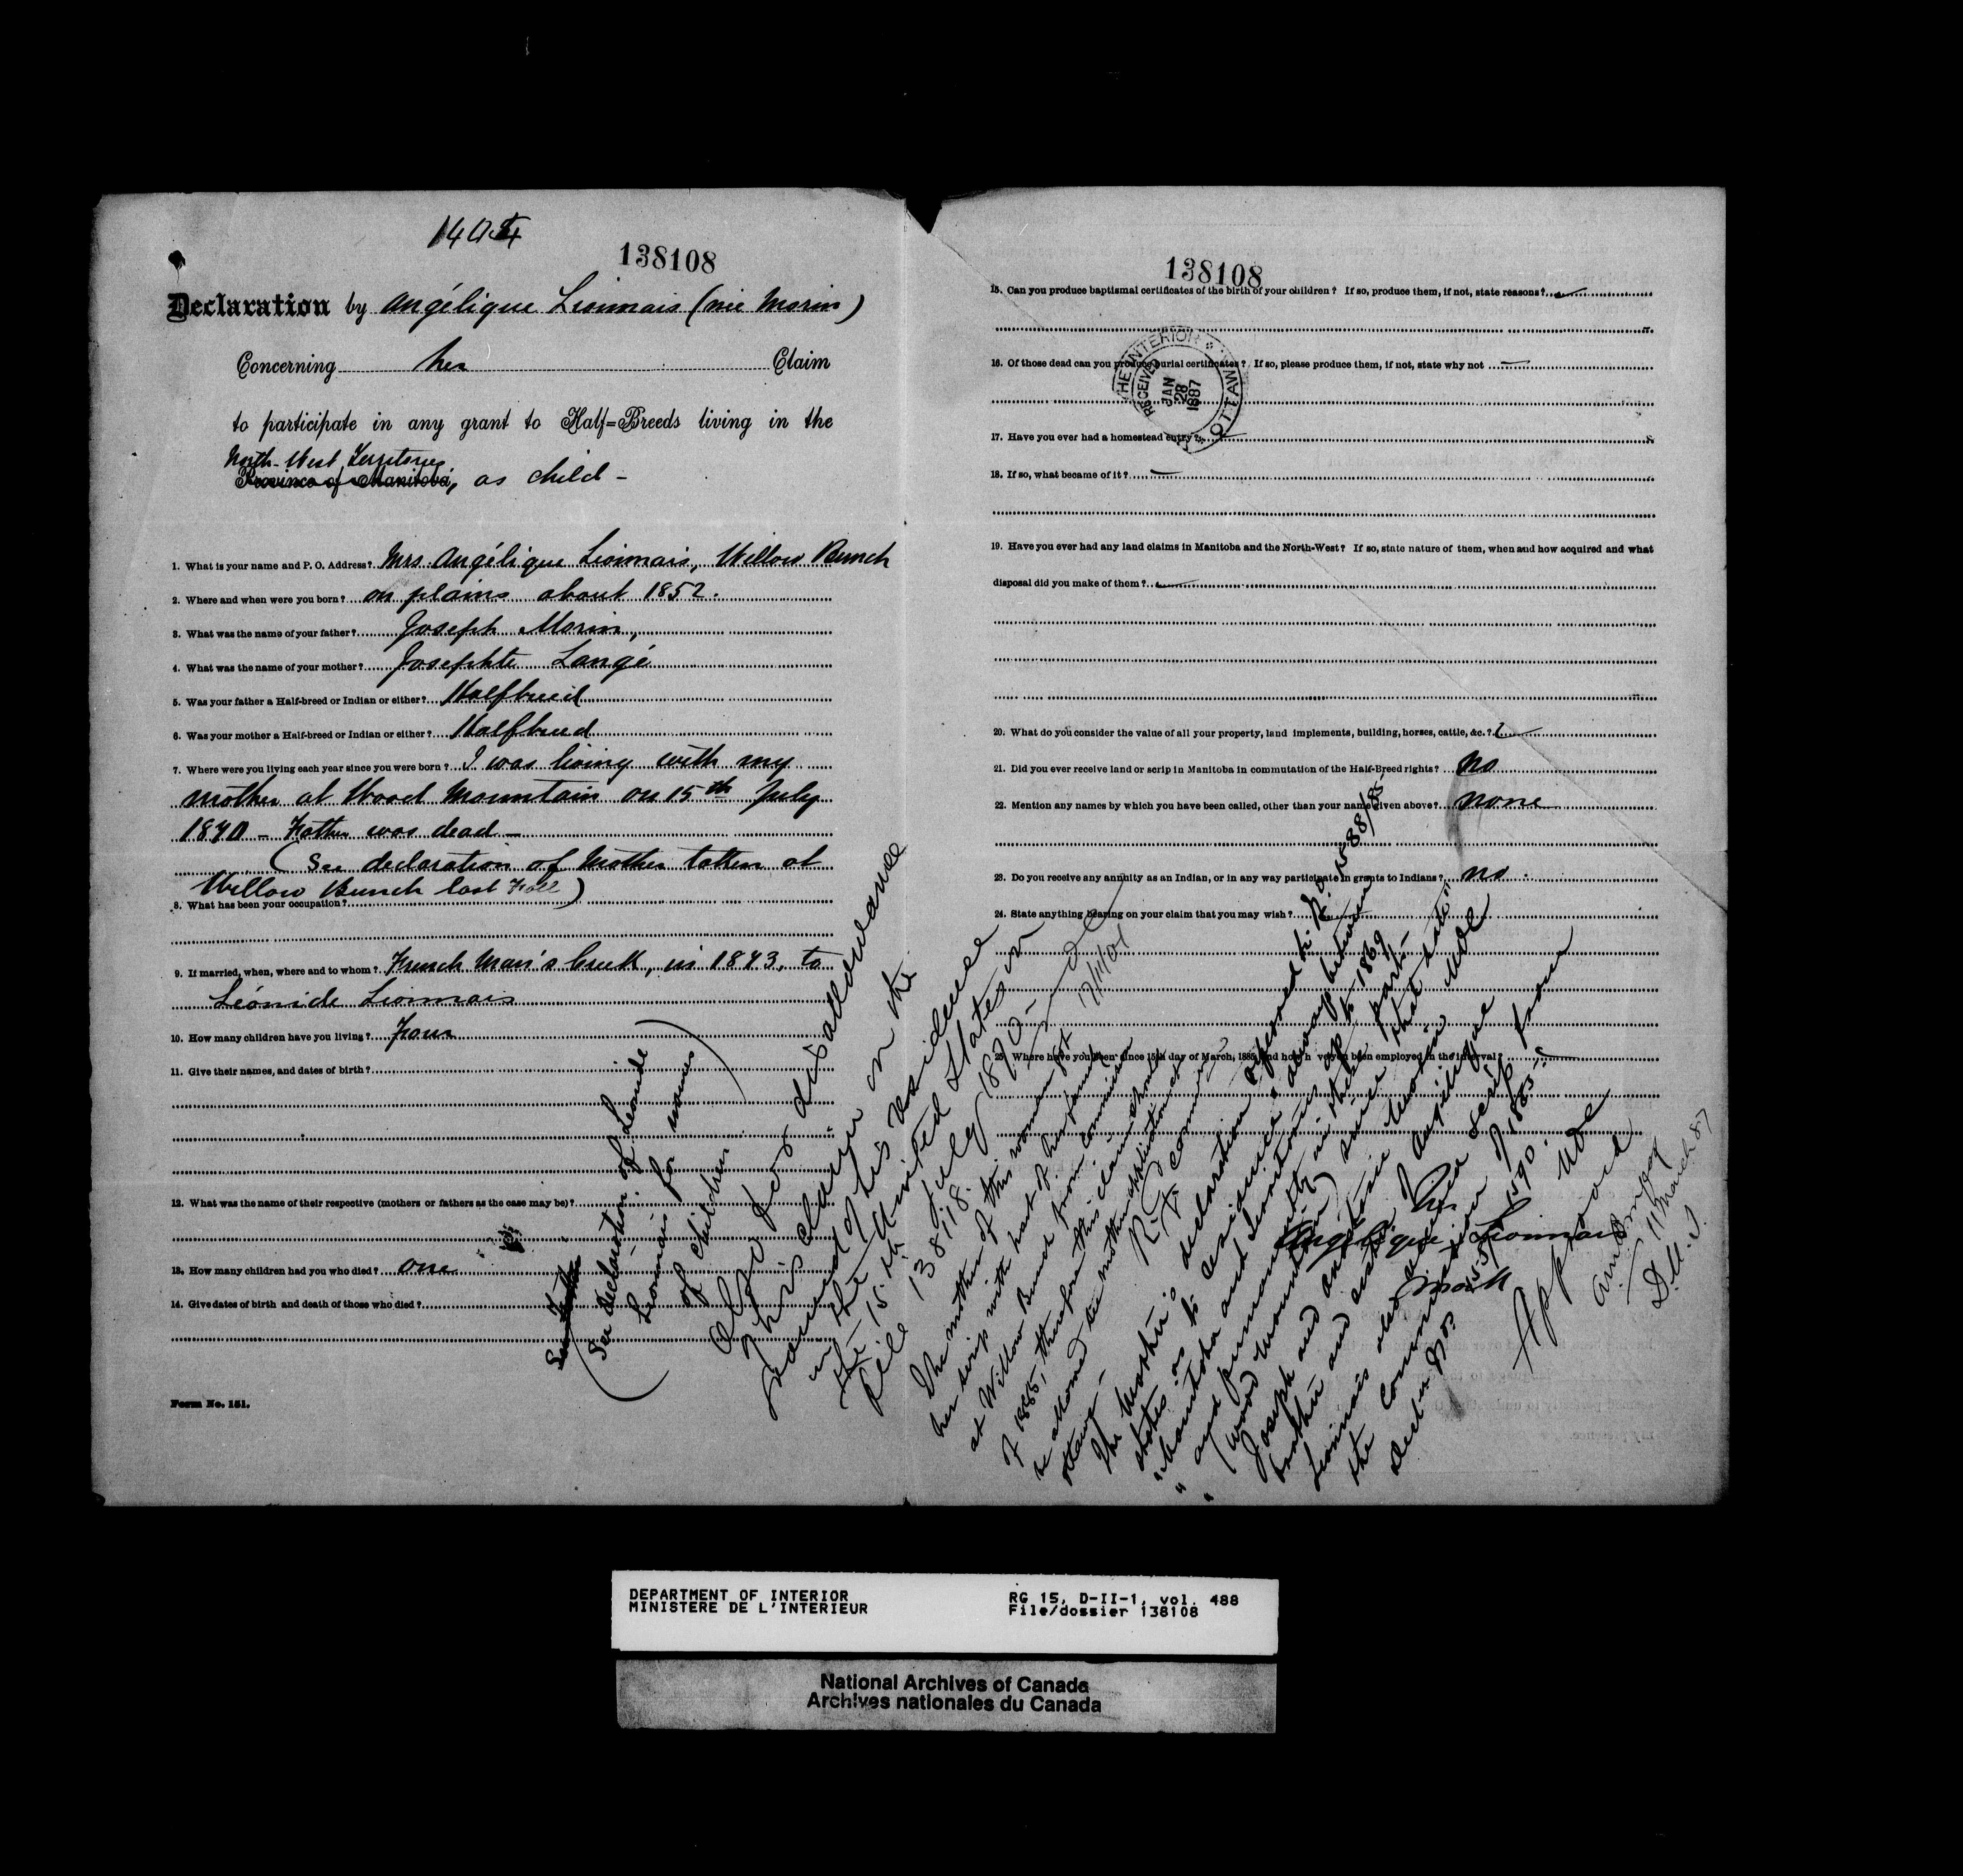 138108
Declaration by Angélique Lionnais (née Morin)
Concerning her Claim
to participate in any grant to Half=Breeds living in the
North-West Territories
Province of Manitoba, as child -
1. What is your name and P. O. Address? Mrs. Angélique Lionnais, Willow Bunch
2. Where and when were you born? on plains about 1852.
3. What was the name of your father? Joseph Morin,
4. What was the name of your mother? Josephte Langé
5. Was your father a Half-breed or Indian or either? Halfbreed
6. Was your mother a Half-breed or Indian or either? Halfbreed
7. Where were you living each year since you were born? I was living with my
mother at Wood Mountain on 15th July
1870 - Father was dead -
(See declaration of Mother taken at
Willow Bunch last Fall)
8. What has been your occupation?
9. If married, when, where and to whom? French Man's Creek, in 1873, to
Léonide Lionnais
10. How many children have you living? Four
11. Give their names, and dates of birth?
12. What was the name of their respective (mothers or fathers as the case may be)?
13. How many children had you who died? one
14. Give dates of birth and death of those who died?
(See declaration of Leonide
Lionnais for names
of children)
Form No. 151.
Also for disallowance
This claim on the
ground of his residence
in the United States on
the 15th July 1870 -
File 138118.
17/11/01
138108
15. Can you produce baptismal certificates of the birth of your children? If so, produce them, if not, state reasons?
16. Of those dead can you produce burial certificates? If so, please produce them, if not, state why not
THE INTERIOR OTTAWA
RECEIVED
JAN
28
1887
17. Have you ever had a homestead entry?
18. If so, what became of it?
19. Have you ever had any land claims in Manitoba and the North-West? If so, state nature of them, when and how acquired and what
disposal did you make of them?
20. What do you consider the value of all your property, land implements, building, horses, cattle, &c.?
21. Did you ever receive land or scrip in Manitoba in commutation of the Half-Breed rights? No
22. Mention any names by which you have been called, other than your name given above? none
23. Do you receive any annuity as an Indian, or in any way participate in grants to Indians? no.
24. State anything bearing on your claim that you may wish?
25. Where have you been since 15th day of March, 1885, and how have you been employed in the interval?
The mother of this woman got
her scrip with part of her family
at Willow Bunch from Commission
of 1885, therefore this claim should
be allowed see mother's application at
Ottawa -
The Mother's declaration
states as to residence always between
"Manitoba and Territories up to 1869
" and permanently in these parts -
" (Wood Mountain) since that date"
Joseph and Antoine Morin
brother and sister of Angelique
Lionnais also were scrip from
the Commission of 1885 -
Angélique Lionnais
her
mark
Approved
11 March 87
D.M.I.
DEPARTMENT OF INTERIOR
MINISTERE DE L'INTERIEUR
RG 15, D-II-1, vol. 488
File/dossier 138108
National Archives of Canada
Archives nationales du Canada